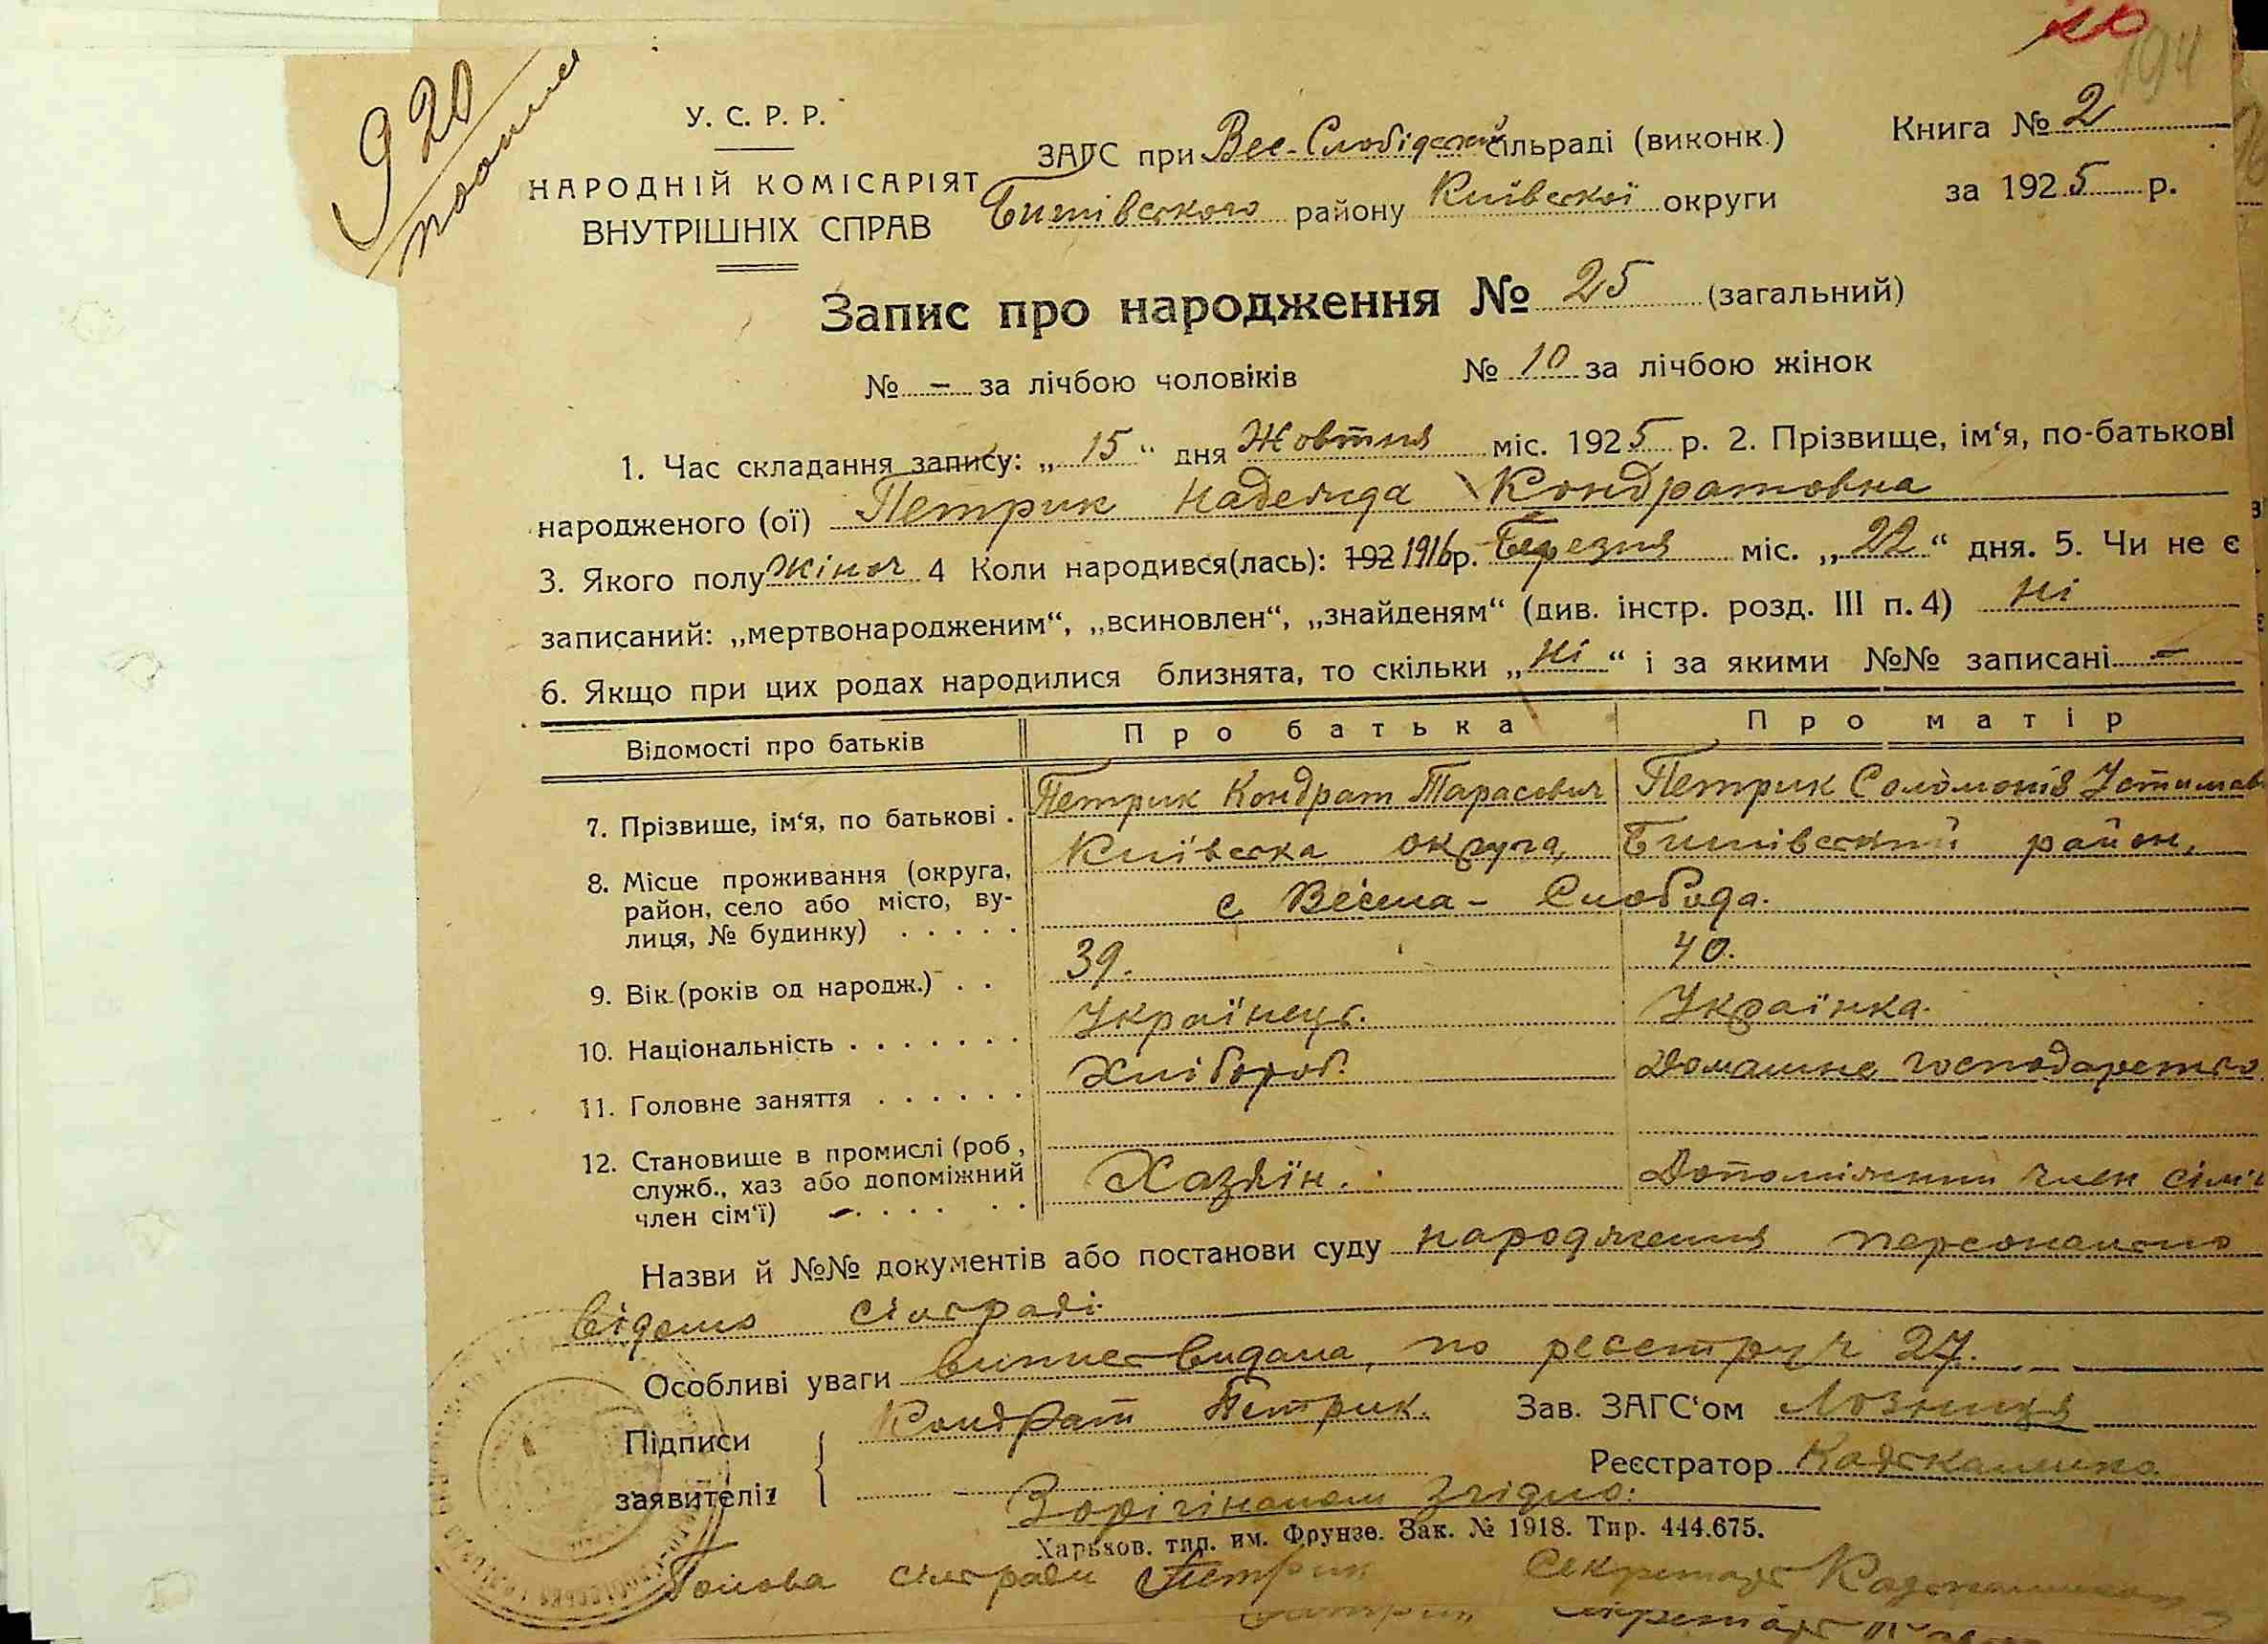 194
920
У. С. Р. Р.
НАРОДНІЙ КОМІСАРІЯТ
ВНУТРІШНІХ СПРАВ
ЗАГС при Вес-Слобідській сільраді (виконк.)
Бишівського району Київської округи
Книга № 2
за 1925 р.
Запис про народження № 25 (загальний)
№ – за лічбою чоловіків № 10 за лічбою жінок
1. Час складання запису: „ 15 “ дня Жовтня міс. 1925 р. 2. Прізвище, ім‘я, по-батькові
народженого (ої) Петрик Надежда Кондратовна
3. Якого полу жіноч 4 Коли народився(лась): 192 1916 р. Березня міс. „ 22 “ дня. 5. Чи не є
записаний: „мертвонародженим“, „всиновлен“, „знайденям“ (див. інстр. розд. III п. 4) ні
6. Якщо при цих родах народилися близнята, то скільки „ ні “ і за якими №№ записані –
Відомості про батьків Про батька Про матір
7. Прізвище, ім‘я, по батькові . Петрик Кондрат Тарасович Петрик Соломонія
8. Місце проживання (округа, Київська округа, Бишівський район,
район, село або місто, ву- с Весела - Слобода.
лиця, № будинку) . . . . .
9. Вік (років од народж.) . . 39. 40.
10. Національність . . . . . . . Українець. Українка.
11. Головне заняття . . . . . . Хлібороб. Домашнє господарство
12. Становище в промислі (роб ,
служб., хаз або допоміжний Хазяїн. Допоміжний член сім'ї
член сім‘ї) . . . . . .
Назви й №№ документів або постанови суду народження персонально
відомо сільраді.
Особливі уваги випис видана, по реєстру ч 27.
Підписи Кондрат Петрик. Зав. ЗАГС‘ом Лозниця
заявителів Реєстратор
З орігіналом згідно:
Харьков. тип. им. Фрунзе. Зак. № 1918. Тир. 444.675.
Голова сільради Петрик Секретарь